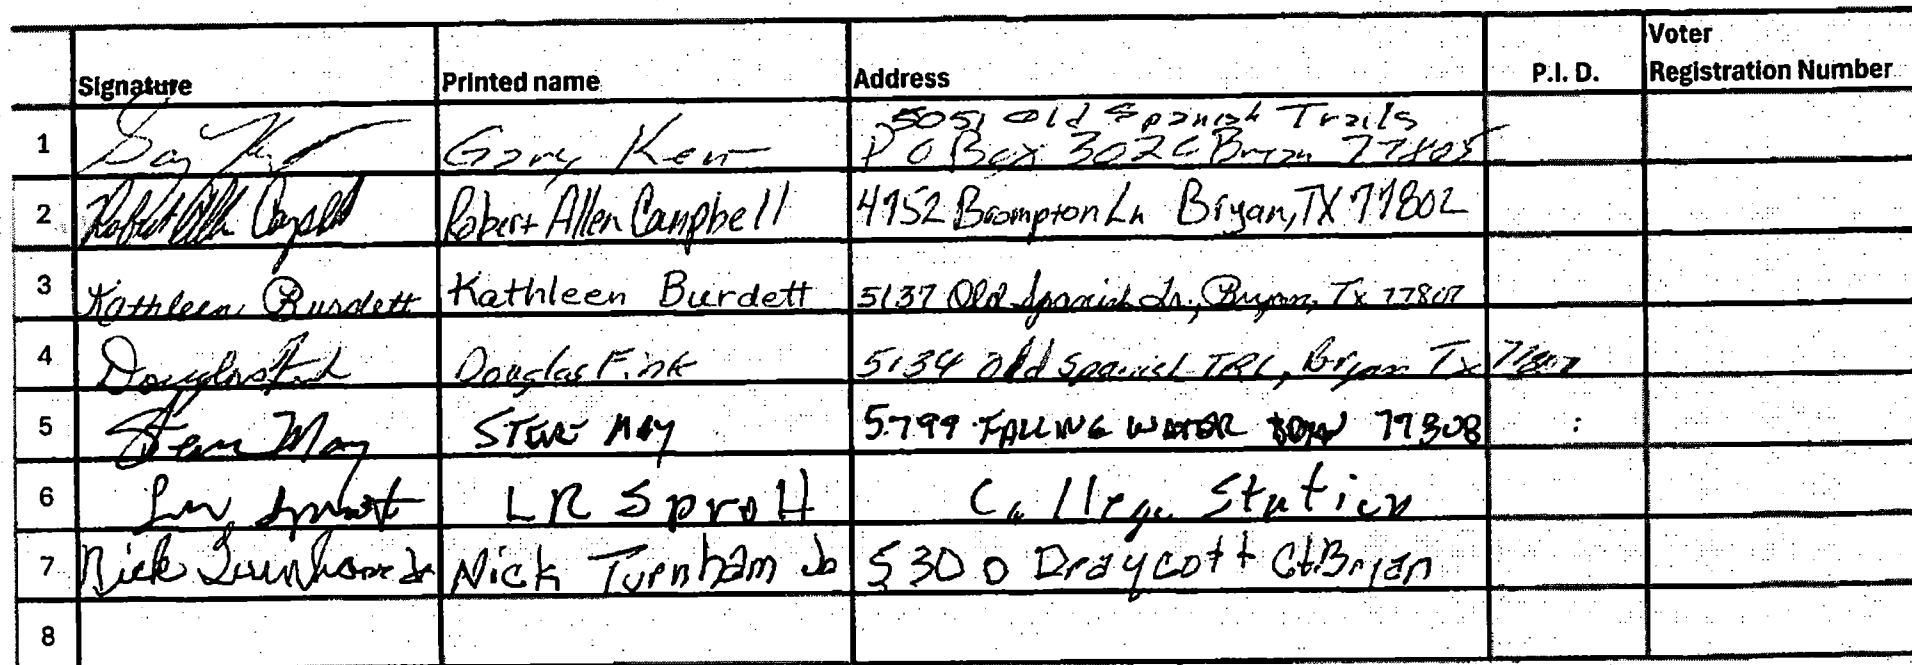 Signature Printed name Address P.I. D. Voter Registration Number
5051 Old Spanish Trails
1 Gary Kerr P O Box 3026 Bryan 77805
2 Robert Allen Campbell Robert Allen Campbell 4952 Brompton Ln Bryan, TX 77802
3 Kathleen Burdett Kathleen Burdett 5137 Old Spanish Tr., Bryan, Tx 77807
4 Douglas Fink Douglas Fink 5134 Old Spanish TRL, Bryan Tx 77807
5 Steve May STEVE MAY 5799 FALLING WATER 77808
6 LR Sprott College Station
7 Nick Turnham Jr Nick Turnham Jr 5300 Draycott Ct. Bryan
8